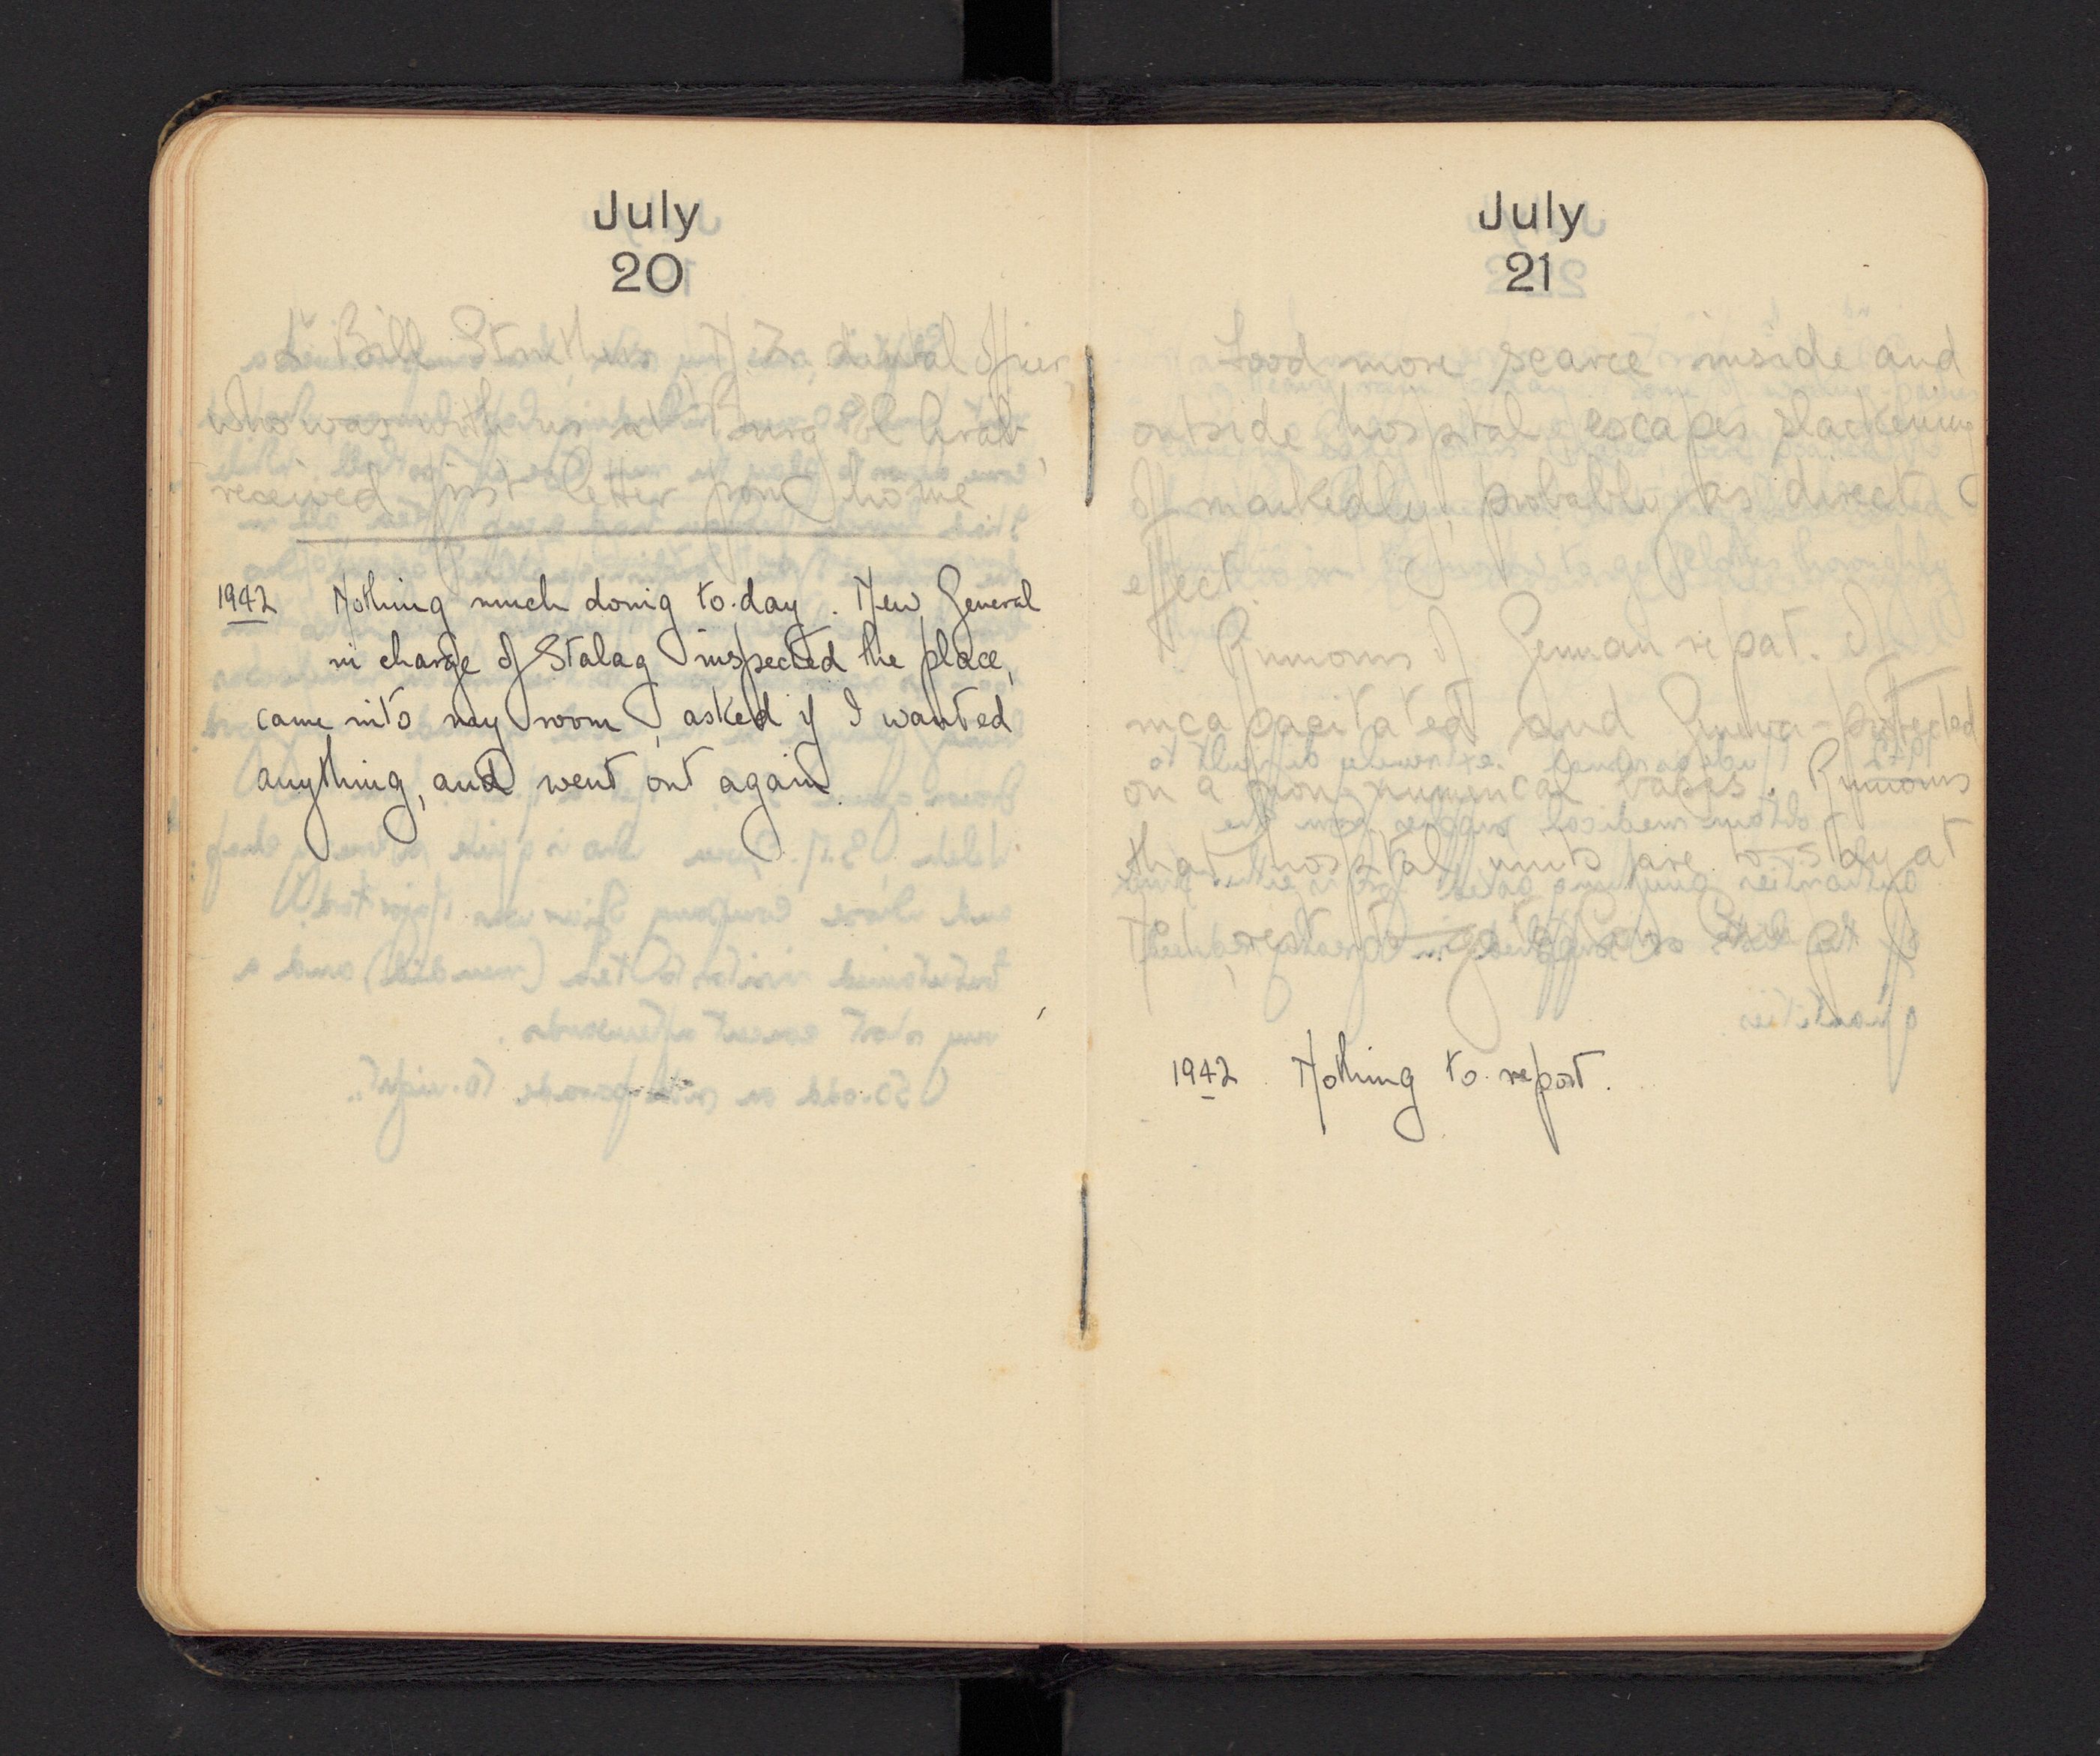 July
20
Bill N.Z. dental officer,
who was with us at
received first letter from home
1942 Nothing much doing to-day. New General
in charge of Stalag inspected the place,
came into my room, asked if I wanted
anything, and went out again.
July
21
Food more scarce inside and
outside hospital, escapes slackening
off markedly, probably as direct
effect.
Rumours of German repat. of
incapacitated and Geneva-protected
on a numerical basis. Rumours
that hospital units are to stay at
rest to go to
1942 Nothing to report.